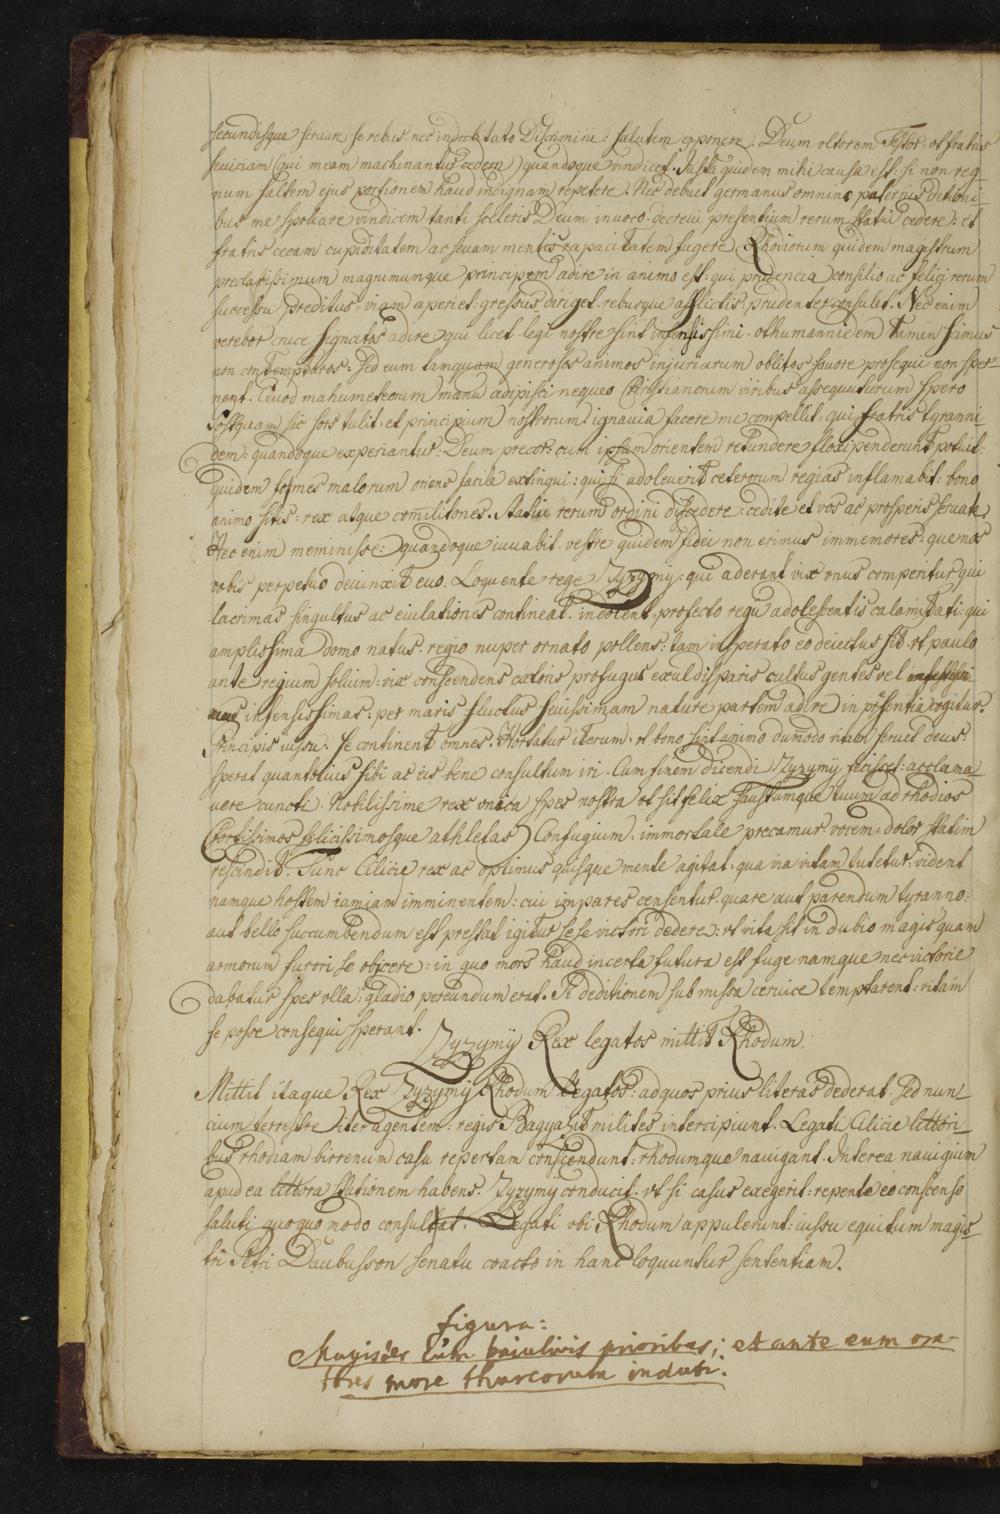 secundisque servare se rebus nec indebitato Discrimini: salutem opponere. Deum ultorem Testor: ut fratris
seviciam (qui meam machinantur cedem) quandoque vindicet. Justa quidem mihi causa est: si non reg-
num saltem ejus portionem haud indignam repetere. Nec debuit germanus omnino paternis ditioni-
bus me spoliare vindicem tanti sceleris Deum invoco decrevi presentium rerum statui cedere: et
fratris cecam cupiditatem ac sevam mentis rapacitatem fugere. Rhodiorum quidem magistrum
preclarissimum magnimumque principem adire in animo est: qui prudencia consilio ac felici rerum
successu preditus: viam aperiet: gressus diriget: rebusque afflictis: prudenter consulet. Nec enim
verebor cruce signatos adire qui licet legi nostre sint infensissimi: othumannidem tamen simus
non contempturos: Sed eum tamquam generosos animos injuriarum oblitos favore prosequi non sper-
nent. Quod mahumeteorum manu adipisci nequeo Christianorum viribus assequuturum spero
Postquam sic sors tulit: et principium nostrorum ignavia facere me compellit: qui fratris tyranni-
dem: quandoque experiantur: Deum precor: cum ipsam orientem retundere floccipenderunt potuit:
quidem fomes malorum oriens facile extingui: qui si adoleverit ceterorum regias inflamabit: bono
animo sitis: rex atque comilitones. Statui rerum ordini discedere: cedite et vos ac prosperis servate
Hec enim meminisse: quandoque iuvabit: vestre quidem fidei non erimus immemores: que nos
vobis perpetuo devinxit evo. Loquente rege Zyzymy: qui aderant vix onus comperitur qui
lacrimas singultus ac eiulationes contineat: indolent profecto regii adolescentis calamitati: qui
amplissima domo natus: regio nuper ornato pollens: tam insperato eo deiectus sit: ut paulo
ante regium solium: vix conscendens extoris profugus exul disparis cultus gentes vel
infensissimas: per maris fluctus sevissimam nature partem adire in presentia cogitur.
Principis iussu: se continent omnes: Hortatur iterum: ut bono sint animo dumodo vitam servet deus:
sperat quantotius sibi ac eis bene consultum iri. Cum finem dicendi Zyzymy fecisset: acclama-
vere cuncti: Nobilissime rex onica spes nostra ut sit felix faustumque tuum ad rhodios
(fortissimos felicissimosque athletas) Confugium: immortale precamur vocem: dolor statim
rescindit. Tunc Cilicie rex ac optimus quisque mente agitat: qua via vitam tutetur: vident
namque hostem iamiam imminentem: cui impares censentur: quare aut parendum tyranno:
aut bello succumbendum est prestat igitur sese victori dedere: ut vita sit in dubio magis quam
armorum furori se obicere: in quo mors haud incerta futura est fuge namque nec victorie
dabatur spes ulla: gladio pereundum erat. Si deditionem submissa cervice temptarent: vitam
se posse consequi sperant.
Zyzymy Rex legatos mittit Rhodum.
Mittit itaque Rex Zyzymy Rhodum Legatos: ad quos prius literas dederat. Sed nun-
cium terrestre iter agentem: regis Bagyazit milites intercipiunt. Legati Cilicie littori-
bus rhodiam birrenum casu repertam conscendunt: rhodumque navigant. Interea navigium
apud ea littora stationem habens: Zyzymy conducit: ut si casus exegerit: repente eo conscenso
saluti quoquo modo consultat: Legati ubi Rhodum appulerunt: iussu equitum magis-
tri Petri Daubusson senatu coacto in hanc loquuntur sententiam.
figura:
Magister cum baiulivis prioribus; et ante eum ora-
tores more thurcorum induti.